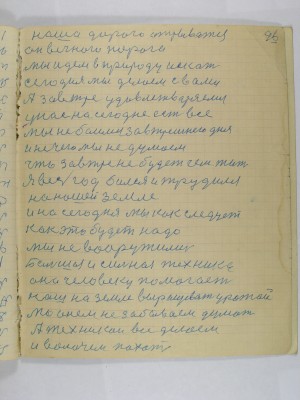 96
наша дорога открывается
он вечного порога
мы идем в природу искат
сегодня мы делаем с вами
А завтре удовлетворяем
у нас на сегодне ест все
мы не боимся завтрешнего дня
и нечего мы не думаем
что завтре не будет чем жит
Я весь год бился и трудился
на нашей земле
и на сегодня мы как следует
как это будет надо
мы не вооружились
Большая и сильная техника
она человеку помогает
нам на земле выращиват урожай
мы о нем не забываем думат
А техникой все делаем
и волочем пахат